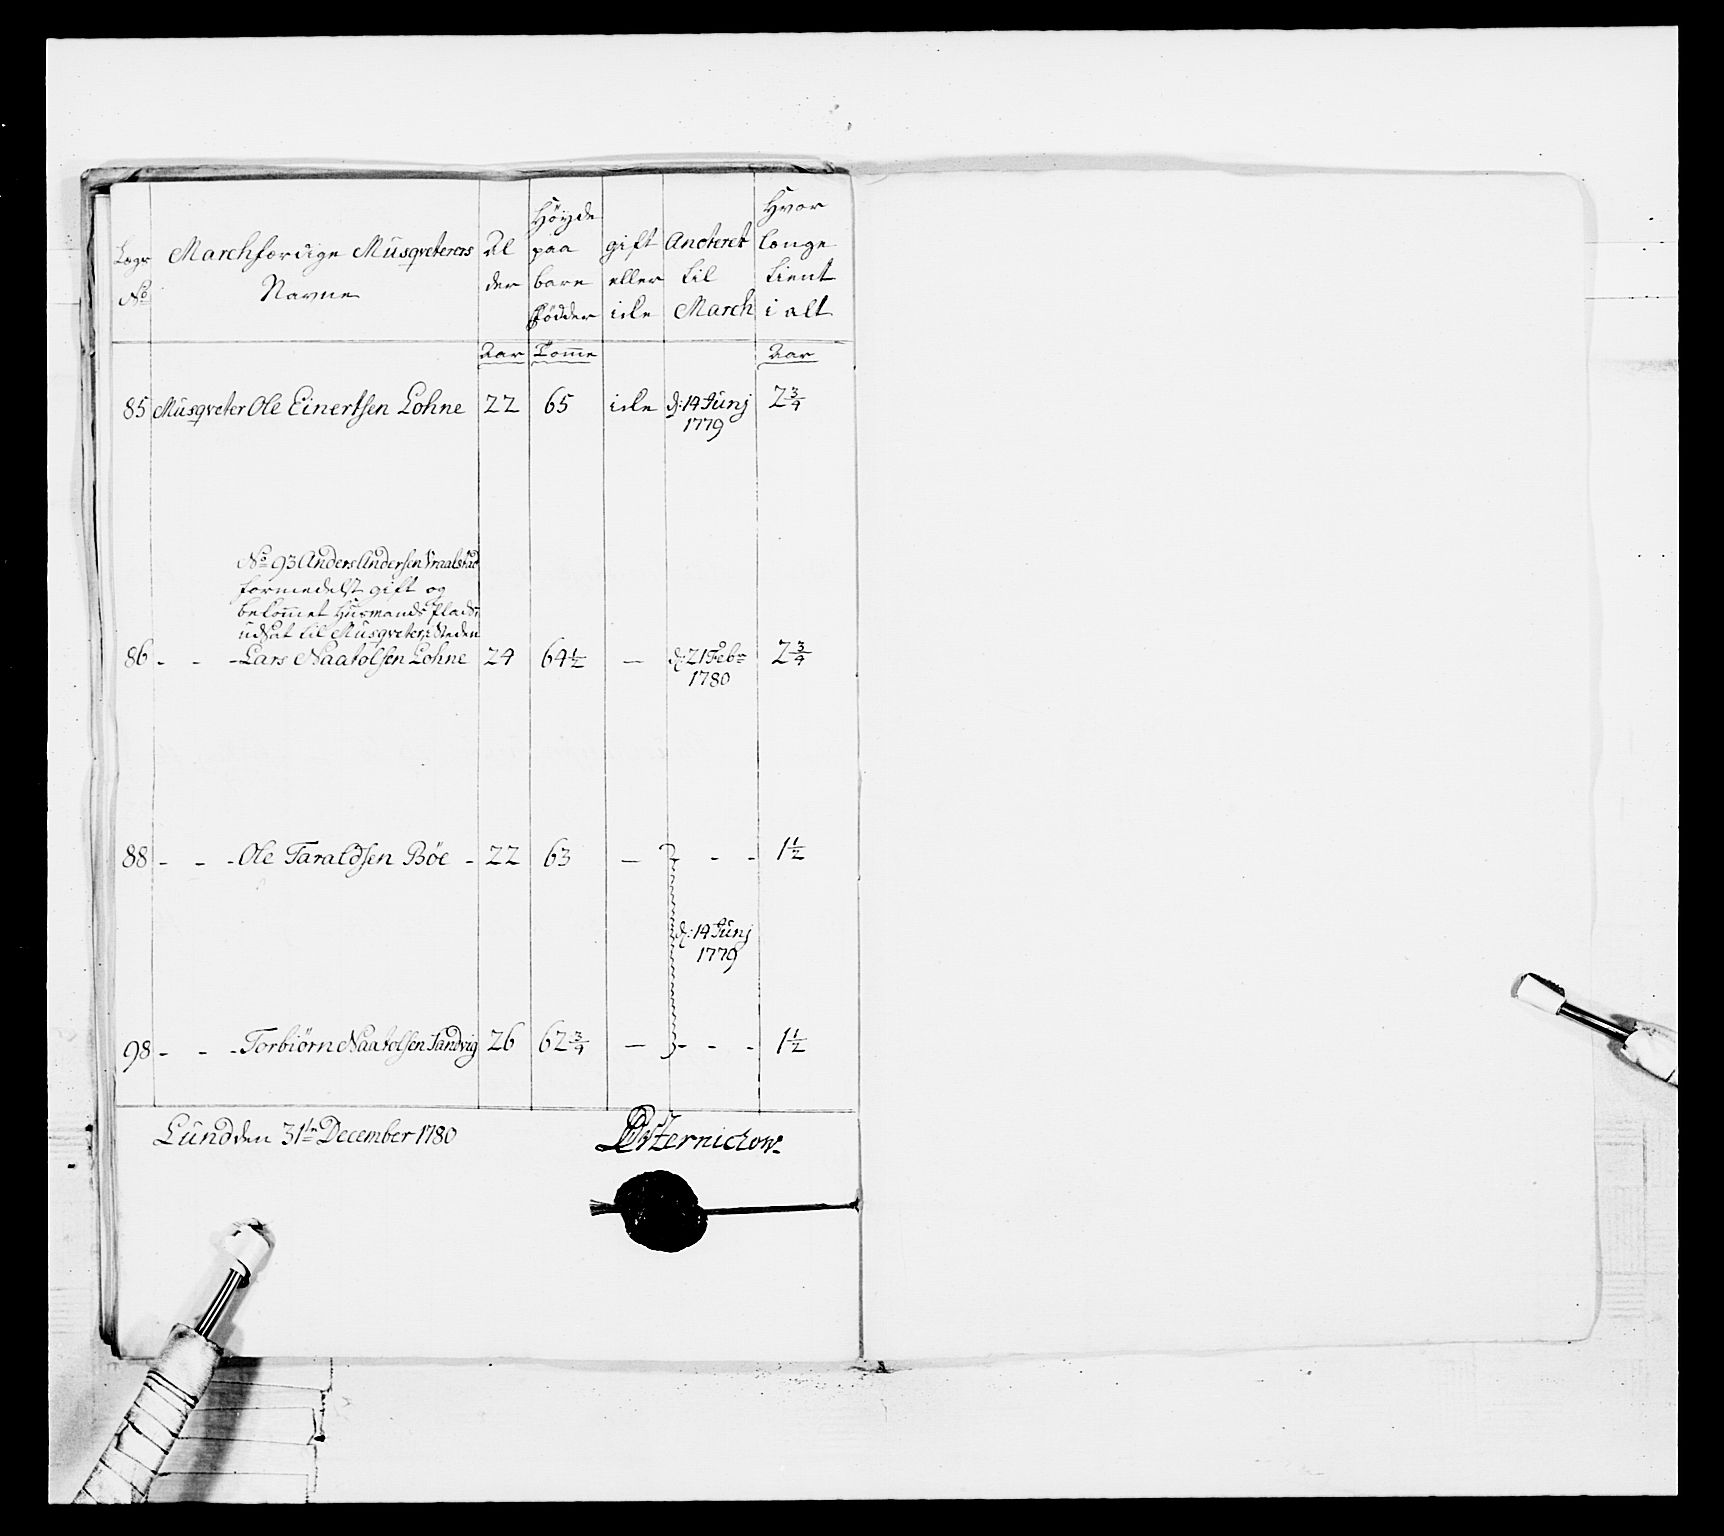 Lægs No
Marchfærdige Musqveterers Navne
Al der
Høyde paa bare fødder
gift eller icke
Anoteret til March
Hvor længe tient i alt
Aar Tomme Aar
85 Musqveter Ole Einertsen Lohne 22 65 icke d: 14 Junj 1779 2 3/4
No 93 Anders Andersen Vraalstad
formedelst gift og
bekommet Husmands Plads,
udsat til Musqveter, i Steden
86 - - - Lars Naatolsen Lohne 24 64 1/2 — d: 21 Febr 1780 2 3/4
88 - - - Ole Taraldsen Bøe - 22 63 — - - - 1 1/2
d: 14 Junj
1779
98 - - - Torbiørn Naatolsen Sandvig 26 62 3/4 — - - - 1 1/2
Lund den 31te December 1780